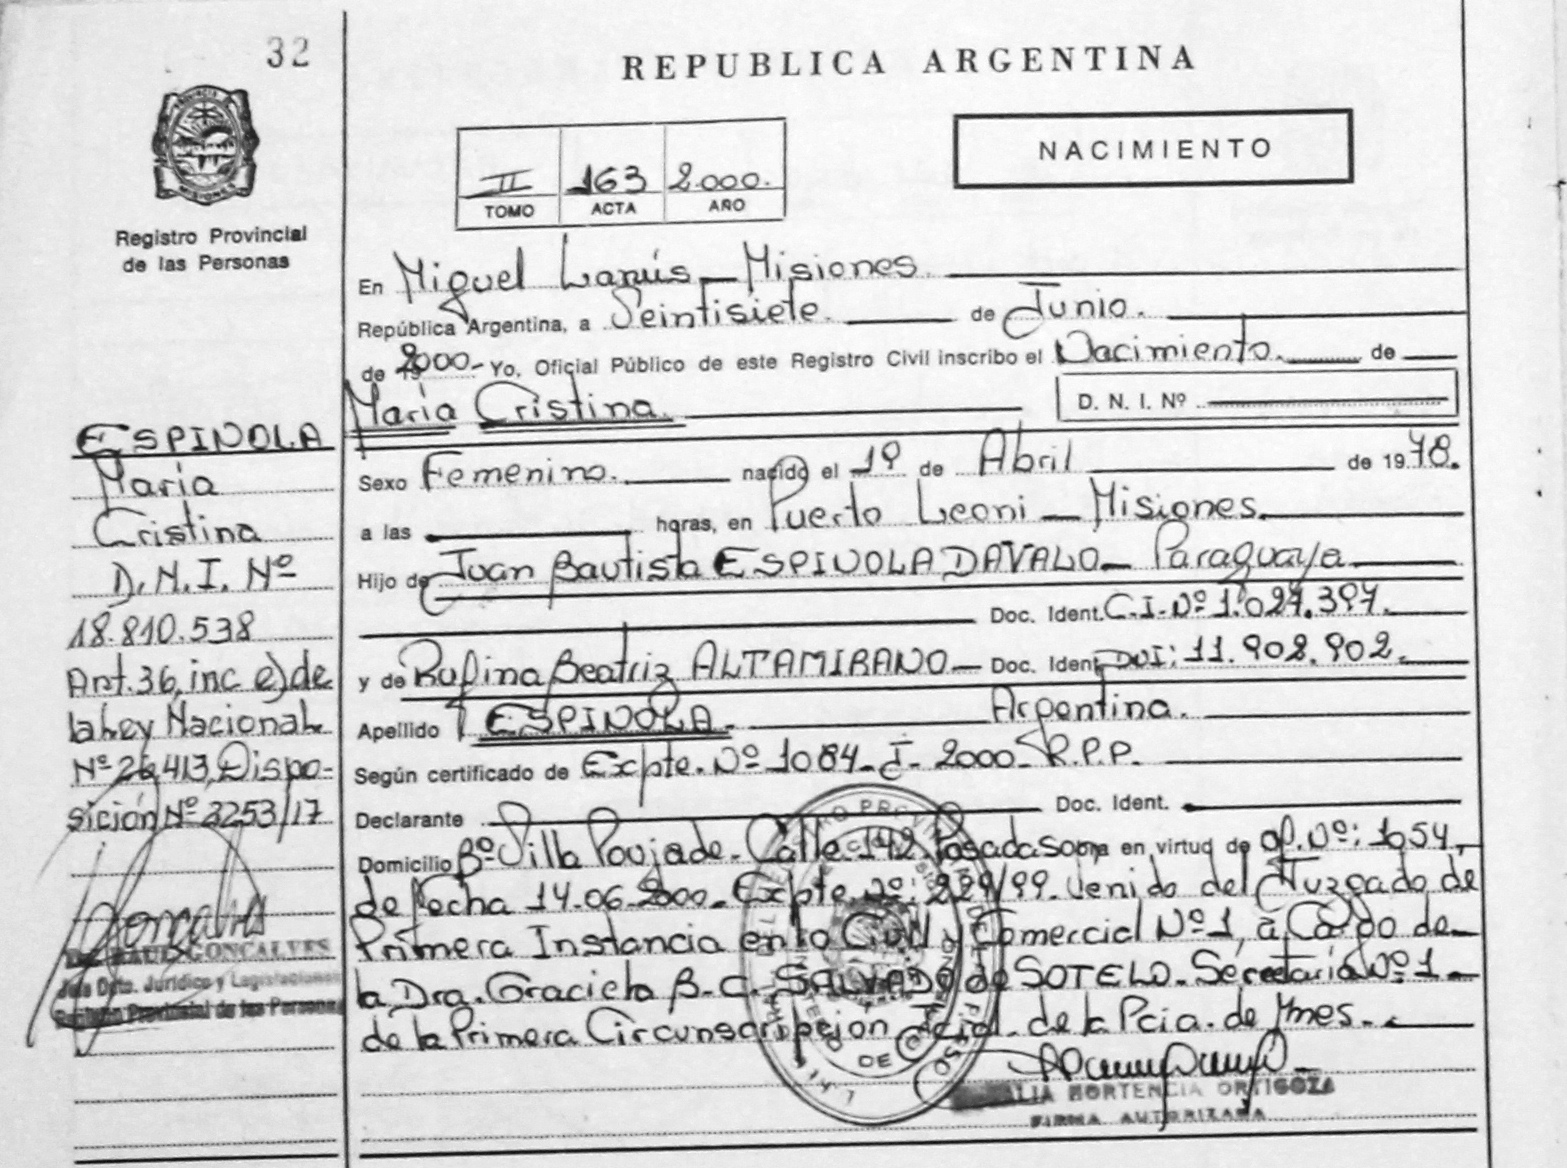 32
REPUBLICA ARGENTINA
NACIMIENTO
II 163 2.000.
TOMO ACTA AÑO
Registro Provincial
de las Personas
En Miguel Lanús - Misiones
República Argentina, a Veintisiete. de Junio.
de 2000- Yo, Oficial Público de este Registro Civil inscribo el Nacimiento. de
María Cristina. D. N. I. Nº
Sexo Femenino. nacido el 19 de Abril de 1978.
a las horas, en Puerto Leoni - Misiones.
Hijo de Juan Bautista ESPINOLA DAVALO - Paraguaya
Doc. Ident. C.I. Nº 1.027.397.
y de Rufina Beatriz ALTAMIRANO - Doc. Ident. DNI: 11.902.902.
Apellido ESPINOLA. Argentina.
Según certificado de Expte. Nº 1084 - J - 2000 - R.P.P.
Declarante Doc. Ident.
Domicilio Bº Villa Poujade. Calle 142 Posadas Obra en virtud de Of. Nº: 1054,
de fecha 14.06.2000 - Expte. nº: 229/99. Venido del Juzgado de
Primera Instancia en lo Civil y Comercial Nº 1, a Cargo de
la Dra. Graciela B. C. SALVADO de SOTELO. Secretaría Nº 1
de la Primera Circunscripcion Jcial. de la Pcia. de Mnes.
ESPINOLA
María
Cristina
D.N.I. Nº
18.810.538
Art. 36, inc e) de
la Ley Nacional
Nº 26,413, Dispo-
sición Nº 3253/17
Dr. RAUL GONCALVES
Jefe Dpto. Jurídico y Legislaciones
Registro Provincial de las Personas
HORTENCIA ORTIGOZA
FIRMA AUTORIZADA